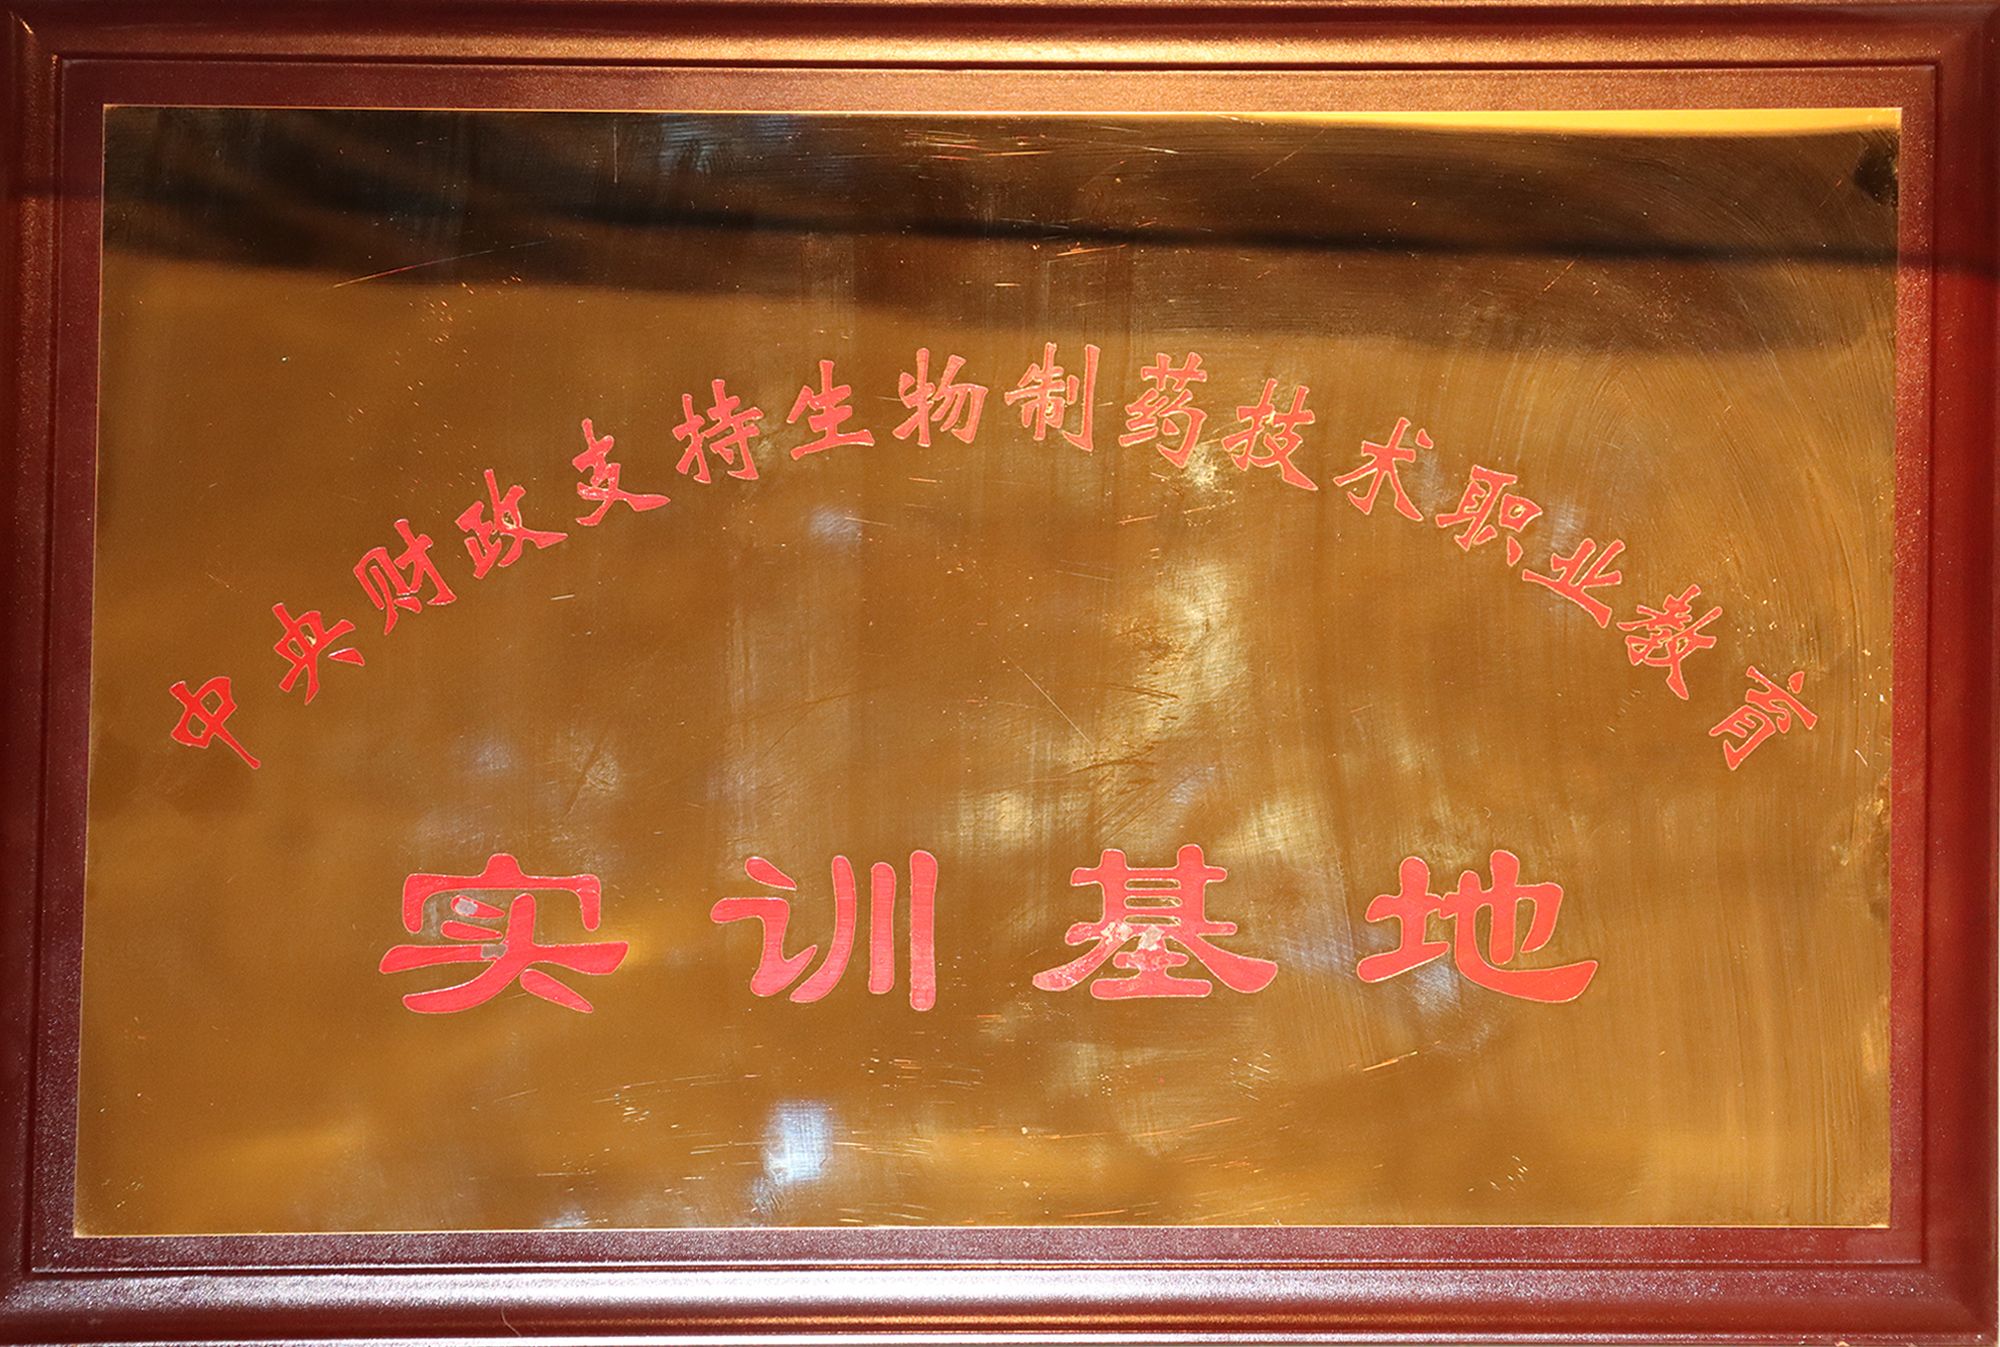 中央财政支持生物制药技术职业教育
实训基地